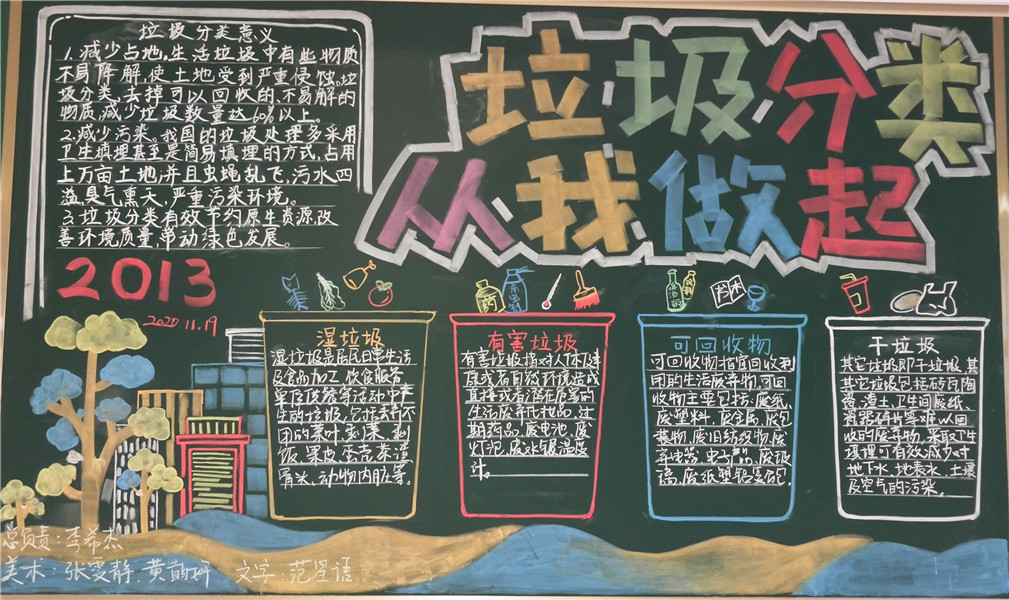 垃圾分类意义
1.减少占地,生活垃圾中有些物质
不易降解,使土地受到严重侵蚀。垃
圾分类,去掉可以回收的,不易解的
物质,减少垃圾数量达60%以上。
2.减少污染。我国的垃圾处理多采用
卫生填埋甚至是简易填埋的方式,占用
上万亩土地;并且虫蝇乱飞,污水四
溢,臭气熏天,严重污染环境。
3.垃圾分类有效节约原生资源,改
善环境质量,带动绿色发展。
垃圾分类
从我做起
2013
2020.11.19
湿垃圾
湿垃圾是居民日常生活
及食品加工、饮食服务
单位供养等活动中产
生的垃圾,包括丢弃不
用的菜叶、剩菜、剩
饭、果皮、蛋壳、茶渣、
骨头、动物内脏等。
有害垃圾
有害垃圾指对人体健
康或者自然环境造成
直接或者潜在危害的
生活废弃
期药品、废电池、废
灯泡、废水银温度
计。
可回收物
可回收物指宜回收利
用的生活废弃物,可回
收物主要包括:废纸、
废塑料、废金属、废包
装物、废旧纺织物、废
弃电器电子产品、废玻
璃、废纸塑铝复合包
干垃圾
其它垃圾即干垃圾,其
其它垃圾包括砖瓦陶
瓷、渣土、卫生间废纸、
瓷器碎片等难以回
收的废弃物,采取卫生
填埋可有效减少对
地下水、地表水、土壤
及空气的污染。
总负责:李希杰
美术:张雯静、黄韵 文字:范星语